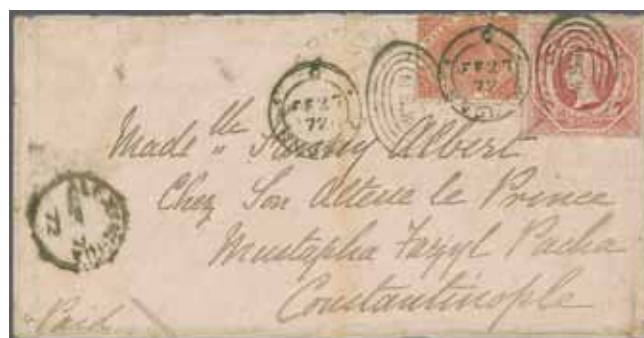 FE 27
72
FE 27
72
Made^lle Fanny Albert
Chez Son Altesse le Prince
Mustapha Fazyl Pacha
Constantinople
72
Paid